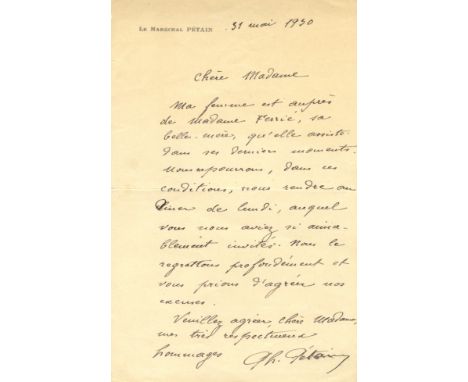 LE MARÉCHAL PÉTAIN
31 mai 1930
Chère Madame
Ma femme est auprès
de Madame Ferrié, sa
belle-mère, qu'elle assiste
dans ses derniers moments.
Nous ne pourrons, dans ces
conditions, nous rendre au
Dîner de lundi, auquel
vous nous aviez si aima-
blement invités. Nous le
regrettons profondément et
vous prions d'agréer nos
excuses.
Veuillez agréer Chère Madame,
mes très respectueux
hommages
Ph. Pétain